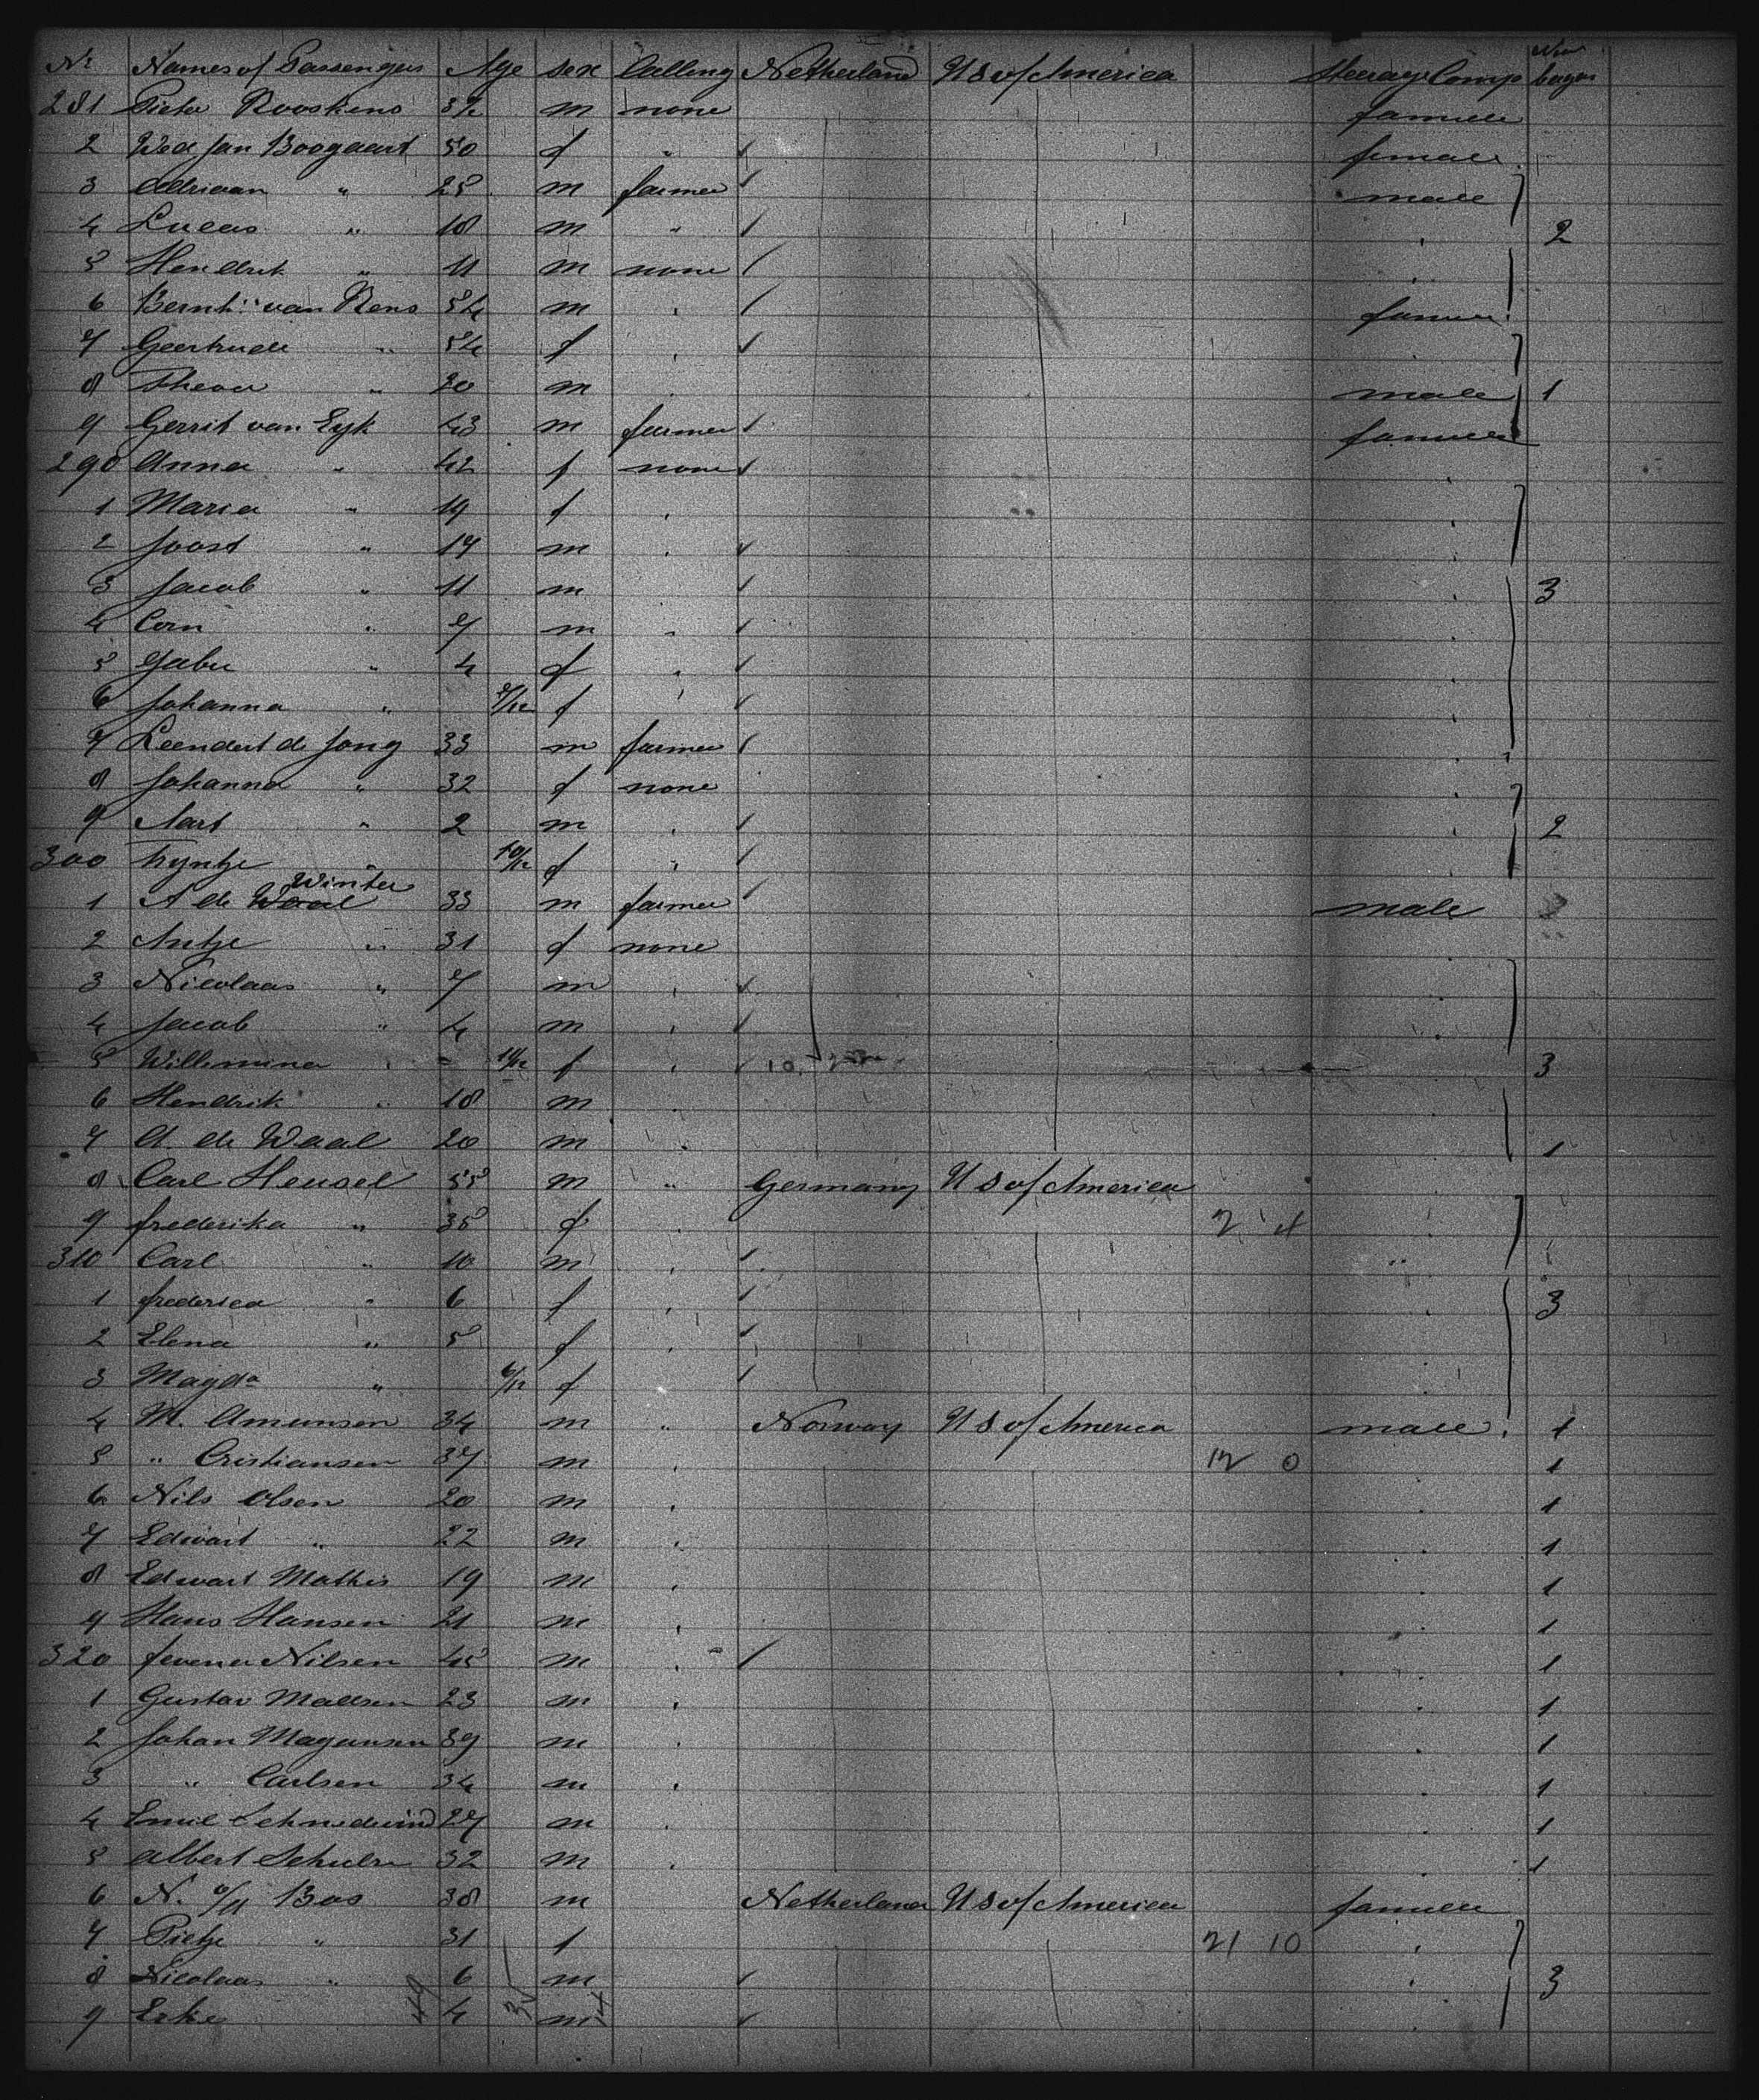 Nr Names of Passengers Age sex Calling Netherland U S of America Steerage Comp
281 Pieter Rooskens 32 m none
2 Wed Jan Boogaart 50 f " female
3 Adriaan " 25 m farmer male
4 Lucas " 18 m " 2
5 Hendrik " 11 m none
6 Bernh: van Rens 54 m
7 Geertruda " 54 f
8 " 20 m male 1
9 Gerrit van Eyk 43 m farmer
290 Anna " 42 f none
1 Maria " 19 f
2 Joost " 17 m
3 Jacob " 11 m 3
4 Corn " 7 m
5 " 4 f
6 Johanna " 7/12 f
7 Leendert de Jong 33 m farmer
8 Johanna " 32 f none
9 Aart " 2 m 2
300 Tryntje " 10/12 f
Winter
1 A de Waal 33 m farmer male
2 Antje " 31 f none
3 Nicolaas " 7 m
4 Jacob " 4 m
5 Willemina " f 3
6 Hendrik " 18 m
7 A. de Waal 20 m 1
8 Carl Hensel 55 m " Germany U S of America
9 frederika " 35 f 2 4
310 Carl " 10 m
1 frederica " 6 f 3
2 Elena " 5 f
3 Magda " 6/12 f
4 M. Amunsen 34 m " Norway U S of America male 1
5 " Cristiansen 37 m 12 0 1
6 Nils Olsen 20 m 1
7 Edwart " 22 m 1
8 Edwart Mathis 19 m 1
9 Hans Hansen 21 m 1
320 Nilsen 45 m 1
1 Gustav Madsen 23 m 1
2 Johan Magunsen 39 m 1
3 " Carlsen 34 m 1
4 Emil 27 m 1
5 Albert 32 m 1
6 N. Bos 38 m Netherland U S of America
7 Pietje " 31 f 21 10
8 Nicolaas " 6 m 3
9 Eske 4 m